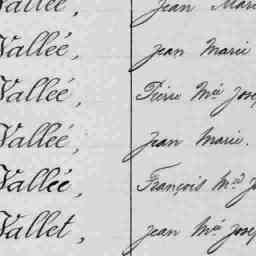 Vallée, Jean Marie
Vallée, Jean Marie
Vallée, Pierre Mie Josep
Vallée, Jean Marie.
Vallée, François Mie J
Vallet, Jean Mie Josep